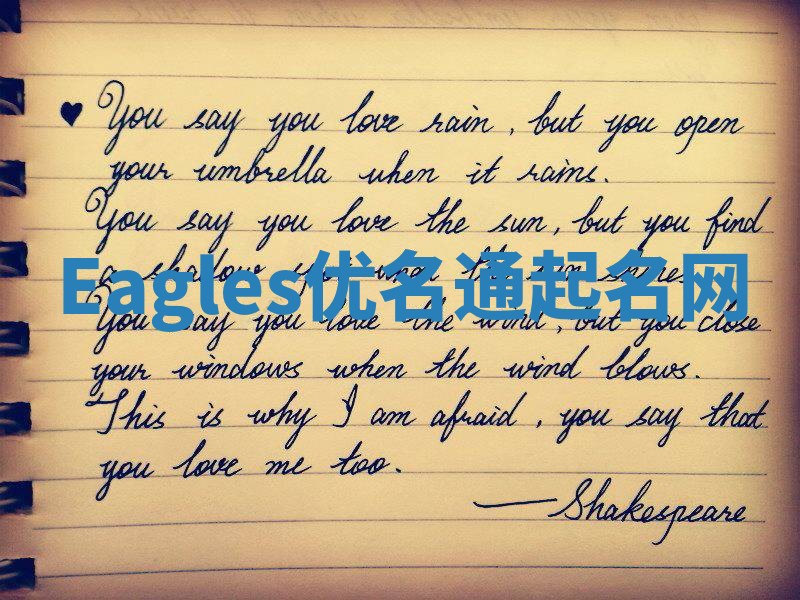 You say you love rain, but you open
your umbrella when it rains.
You say you love the sun, but you find
a shadow
Eagles优名通起名网
You say you love the wind, but you close
your windows when the wind blows.
This is why I am afraid, you say that
you love me too.
—Shakespeare